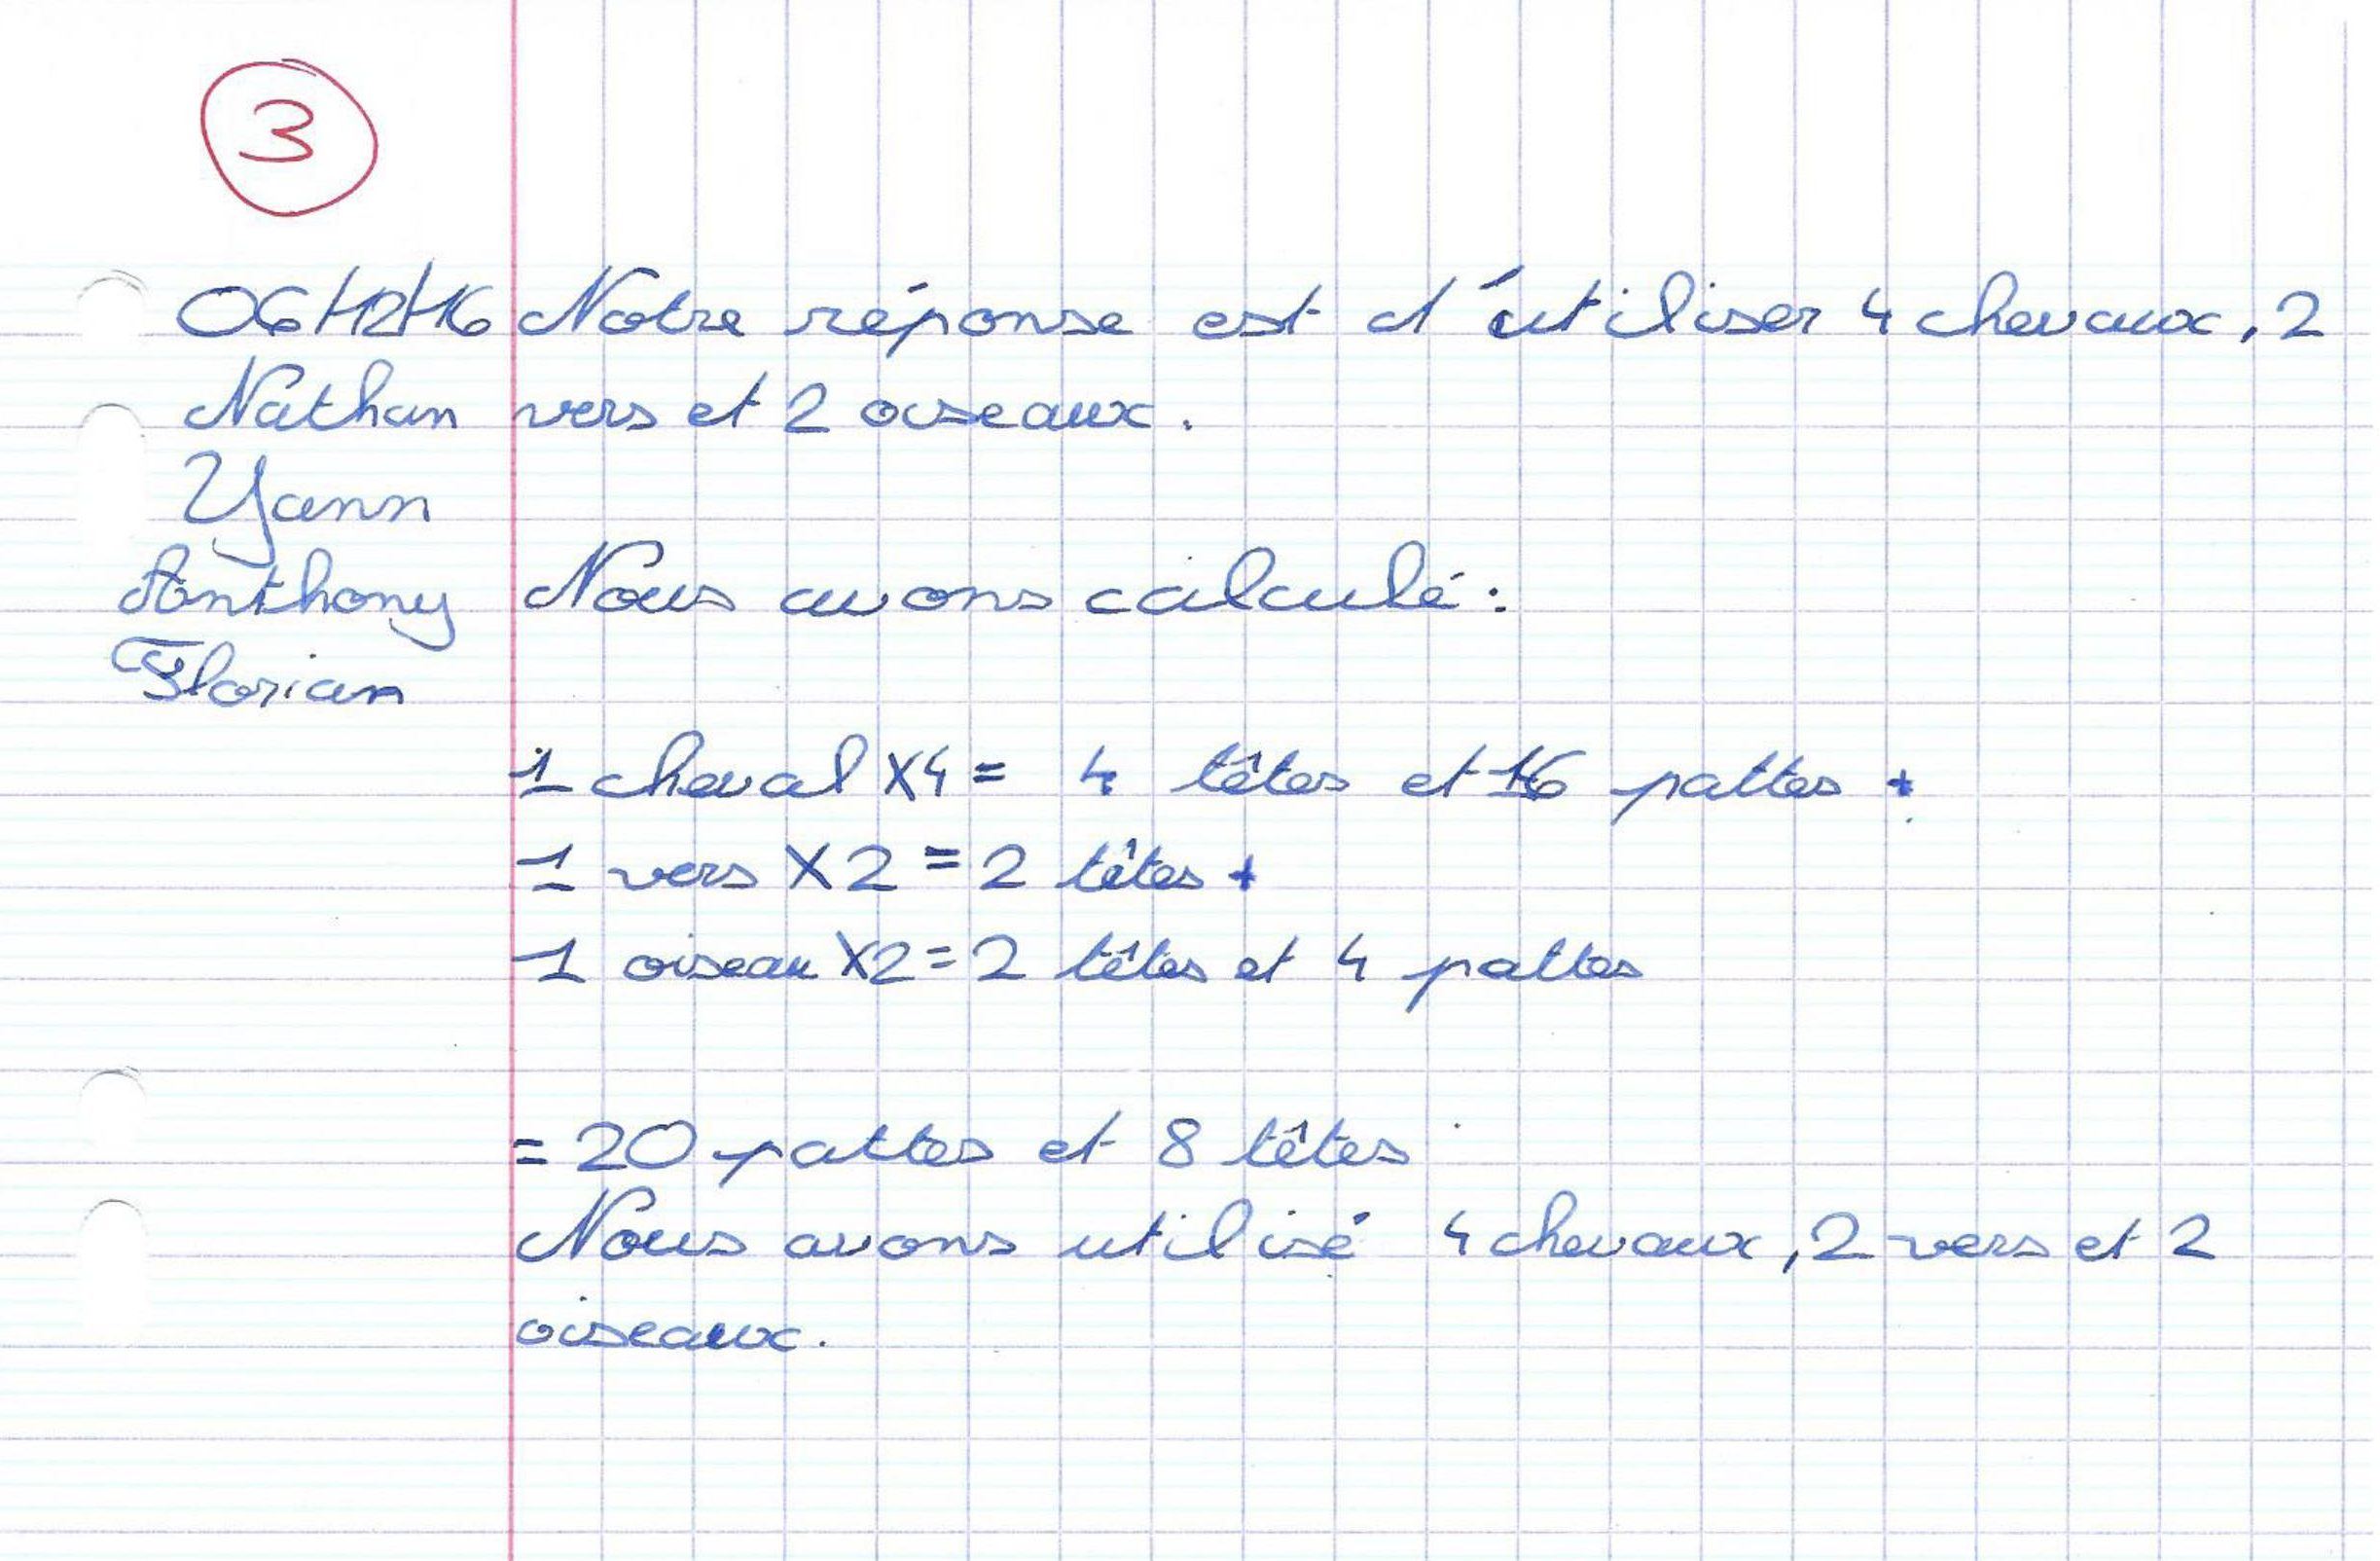 3
06/12/16 Notre réponse est d'utiliser 4 chevaux, 2
Nathan vers et 2 oiseaux.
Yann
Anthony Nous avons calculé :
Florian
1 cheval X4 = 4 têtes et 16 pattes +
1 vers X 2 = 2 têtes +
1 oiseau X2 = 2 têtes et 4 pattes
= 20 pattes et 8 têtes
Nous avons utilisé 4 chevaux, 2 vers et 2
oiseaux.